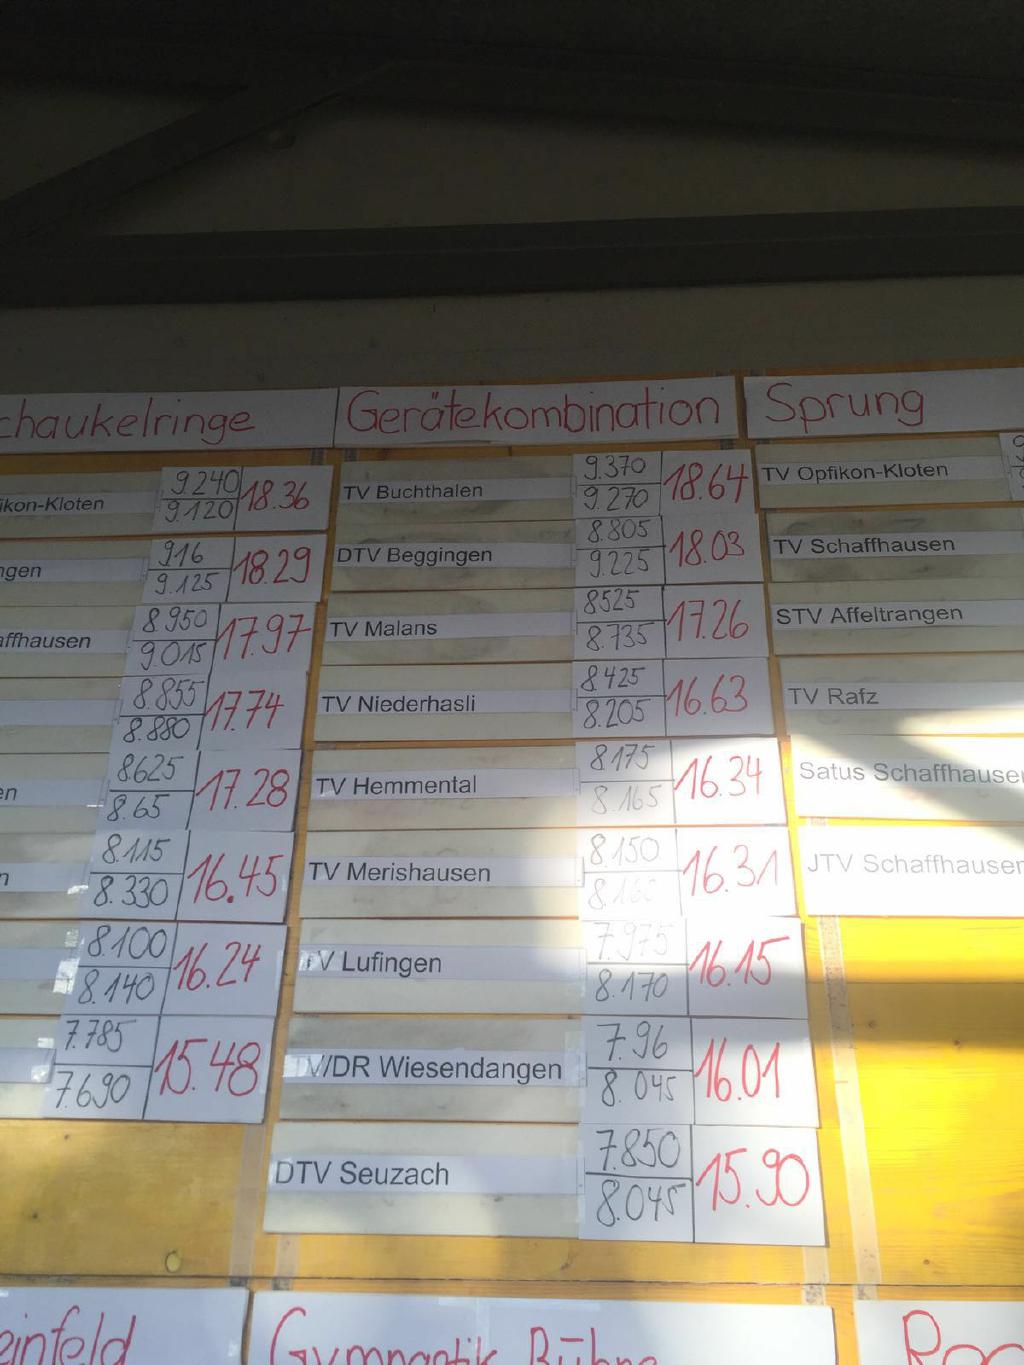 chaukelringe
ikon-Kloten 9.240 9.120 18.36
ngen 9.16 9.125 18.29
affhausen 8.950 9.015 17.97
8.855 8.880 17.74
en 8.625 8.65 17.28
n 8.115 8.330 16.45
8.100 8.140 16.24
7.785 7.690 15.48
Gerätekombination
TV Buchthalen 9.370 9.270 18.64
DTV Beggingen 8.805 9.225 18.03
TV Malans 8525 8.735 17.26
TV Niederhasli 8.425 8.205 16.63
TV Hemmental 8.175 8.165 16.34
TV Merishausen 8.150 16.31
TV Lufingen 7.975 8.170 16.15
V/DR Wiesendangen 7.96 8.045 16.01
DTV Seuzach 7.850 8.045 15.90
Sprung
TV Opfikon-Kloten
TV Schaffhausen
STV Affeltrangen
TV Rafz
Satus Schaffhausen
JTV Schaffhausen
einfeld
Gymnastik Bühne